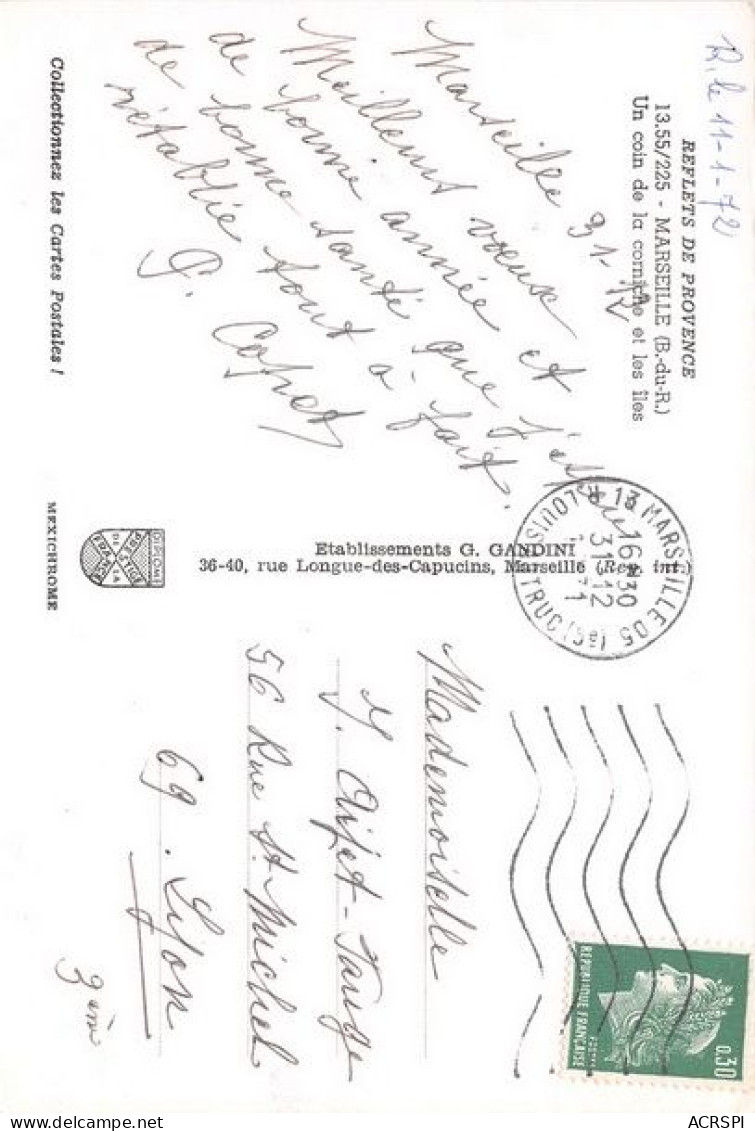 R. le 11-1-72
REFLETS DE PROVENCE
13.55/225 - MARSEILLE (B.-du-R.)
Un coin de la corniche et les îles
Marseille
Meilleurs vœux
de bonne année et
de bonne santé que j'espère
rétablie tout à fait.
Collectionnez les Cartes Postales !
Etablissements G. GANDINI
36-40, rue Longue-des-Capucins, Marseille (Rep. int.)
DIPLOME
PRESTIGE
DE LA
FRANCE
MEXICHROME
13 MARSEILLE 05
16 H 30
31 12
Mademoiselle
56 Rue St. Michel
69. Lyon
7 ém
REPUBLIQUE FRANÇAISE
POSTES
0,30
ACRSPI